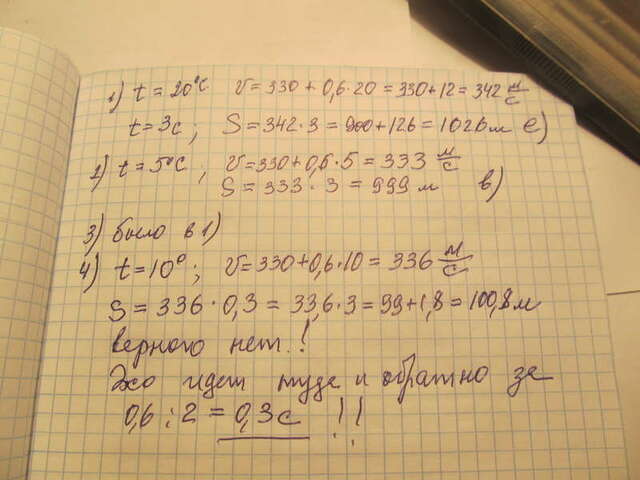 1) t = 20°C V = 330 + 0,6·20 = 330+12 = 342 м/с
t = 3с ; S = 342·3 = 900+126 = 1026 м е)
2) t = 5°C ; V = 330+0,6·5 = 333 м/с
S = 333·3 = 999 м в)
3) было в 1)
4) t = 10° ; V = 330+0,6·10 = 336 м/с
S = 336·0,3 = 33,6·3 = 99+1,8 = 100,8 м
верного нет!
Эхо идет туда и обратно за
0,6 : 2 = 0,3 с !!